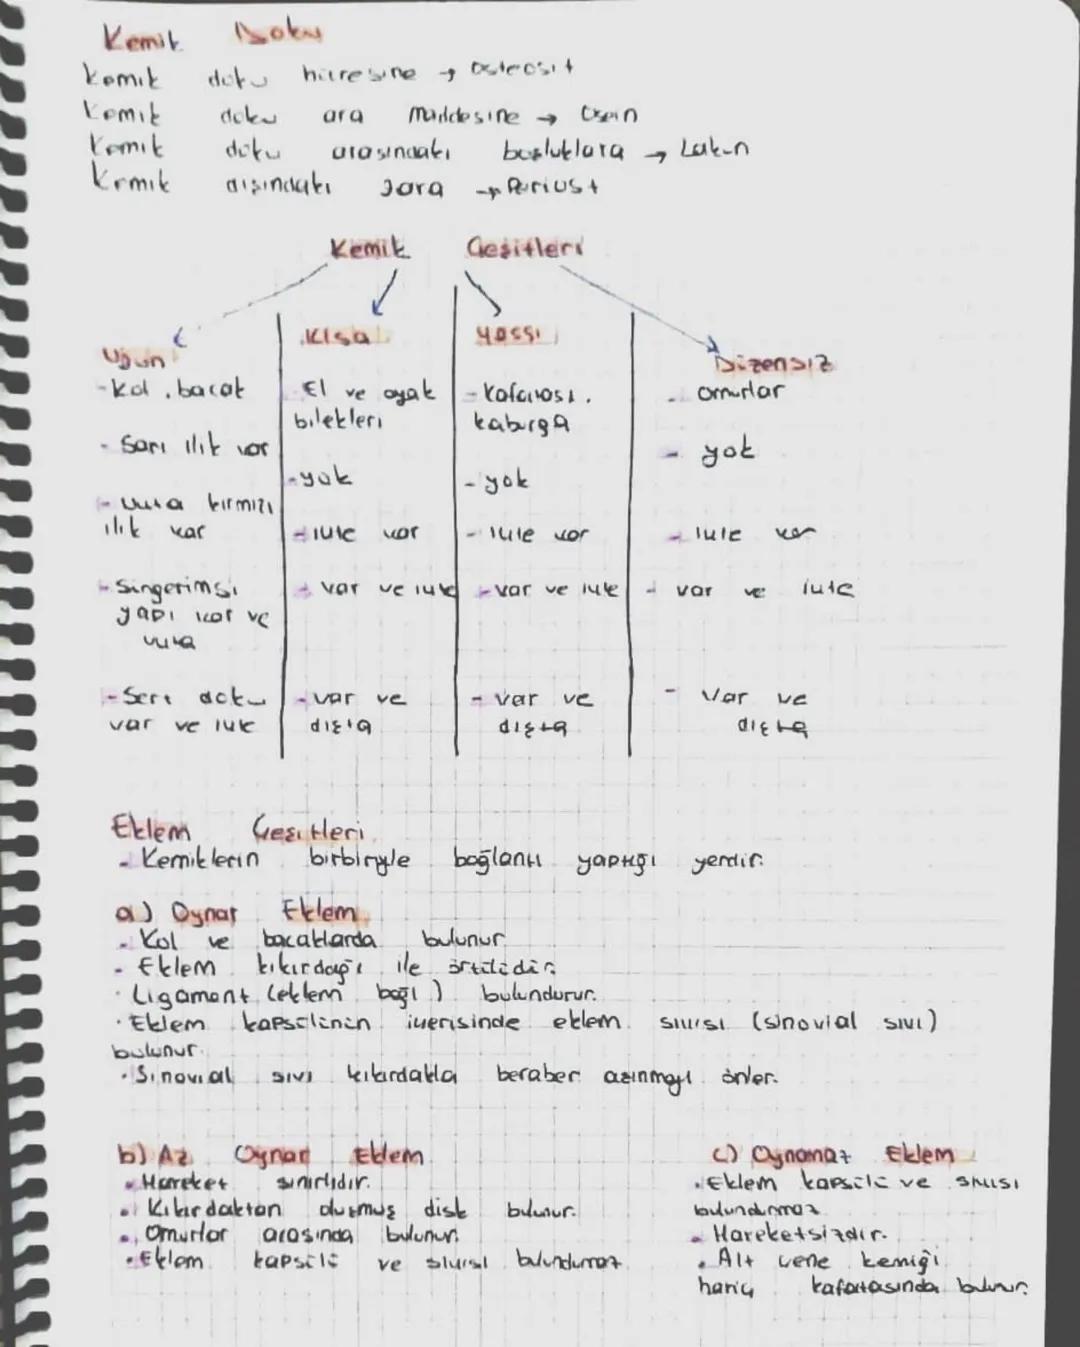 Kemik Doku
Kemik doku hücresine → osteosit
Kemik doku ara maddesine → Osein
Kemik doku arasındaki boşluklara → Lakün
Kemik dışındaki zara → Periost
Kemik Çeşitleri
Uzun
- Kol, bacak
- Sarı ilik var
- Uçta kırmızı
ilik var
- Süngerimsi
yapı var ve
uçta
- Sert doku
var ve içte
Kısa
- El ve ayak
bilekleri
- yok
- içte var
- var ve içte
- var ve
dışta
Yassı
- Kafatası,
kaburga
- yok
- içte var
- var ve içte
- var ve
dışta
Düzensiz
- omurlar
- yok
- içte var
- var ve içte
- var ve
dışta
Eklem Çeşitleri
- Kemiklerin birbiriyle bağlantı yaptığı yerdir.
a) Oynar Eklem
• Kol ve bacaklarda bulunur
• Eklem kıkırdağı ile örtülüdür.
• Ligament (eklem bağı) bulundurur.
• Eklem kapsülünün içerisinde eklem sıvısı (sinovial sıvı)
bulunur.
• Sinovial sıvı kıkırdakla beraber aşınmayı önler.
b) Az Oynar Eklem
• Hareket sınırlıdır.
• Kıkırdaktan oluşmuş disk bulunur.
• Omurlar arasında bulunur.
• Eklem kapsülü ve sıvısı bulundurmaz
c) Oynamaz Eklem
• Eklem kapsülü ve sıvısı
bulundurmaz
• Hareketsizdir.
• Alt çene kemiği
hariç kafatasında bulunur.